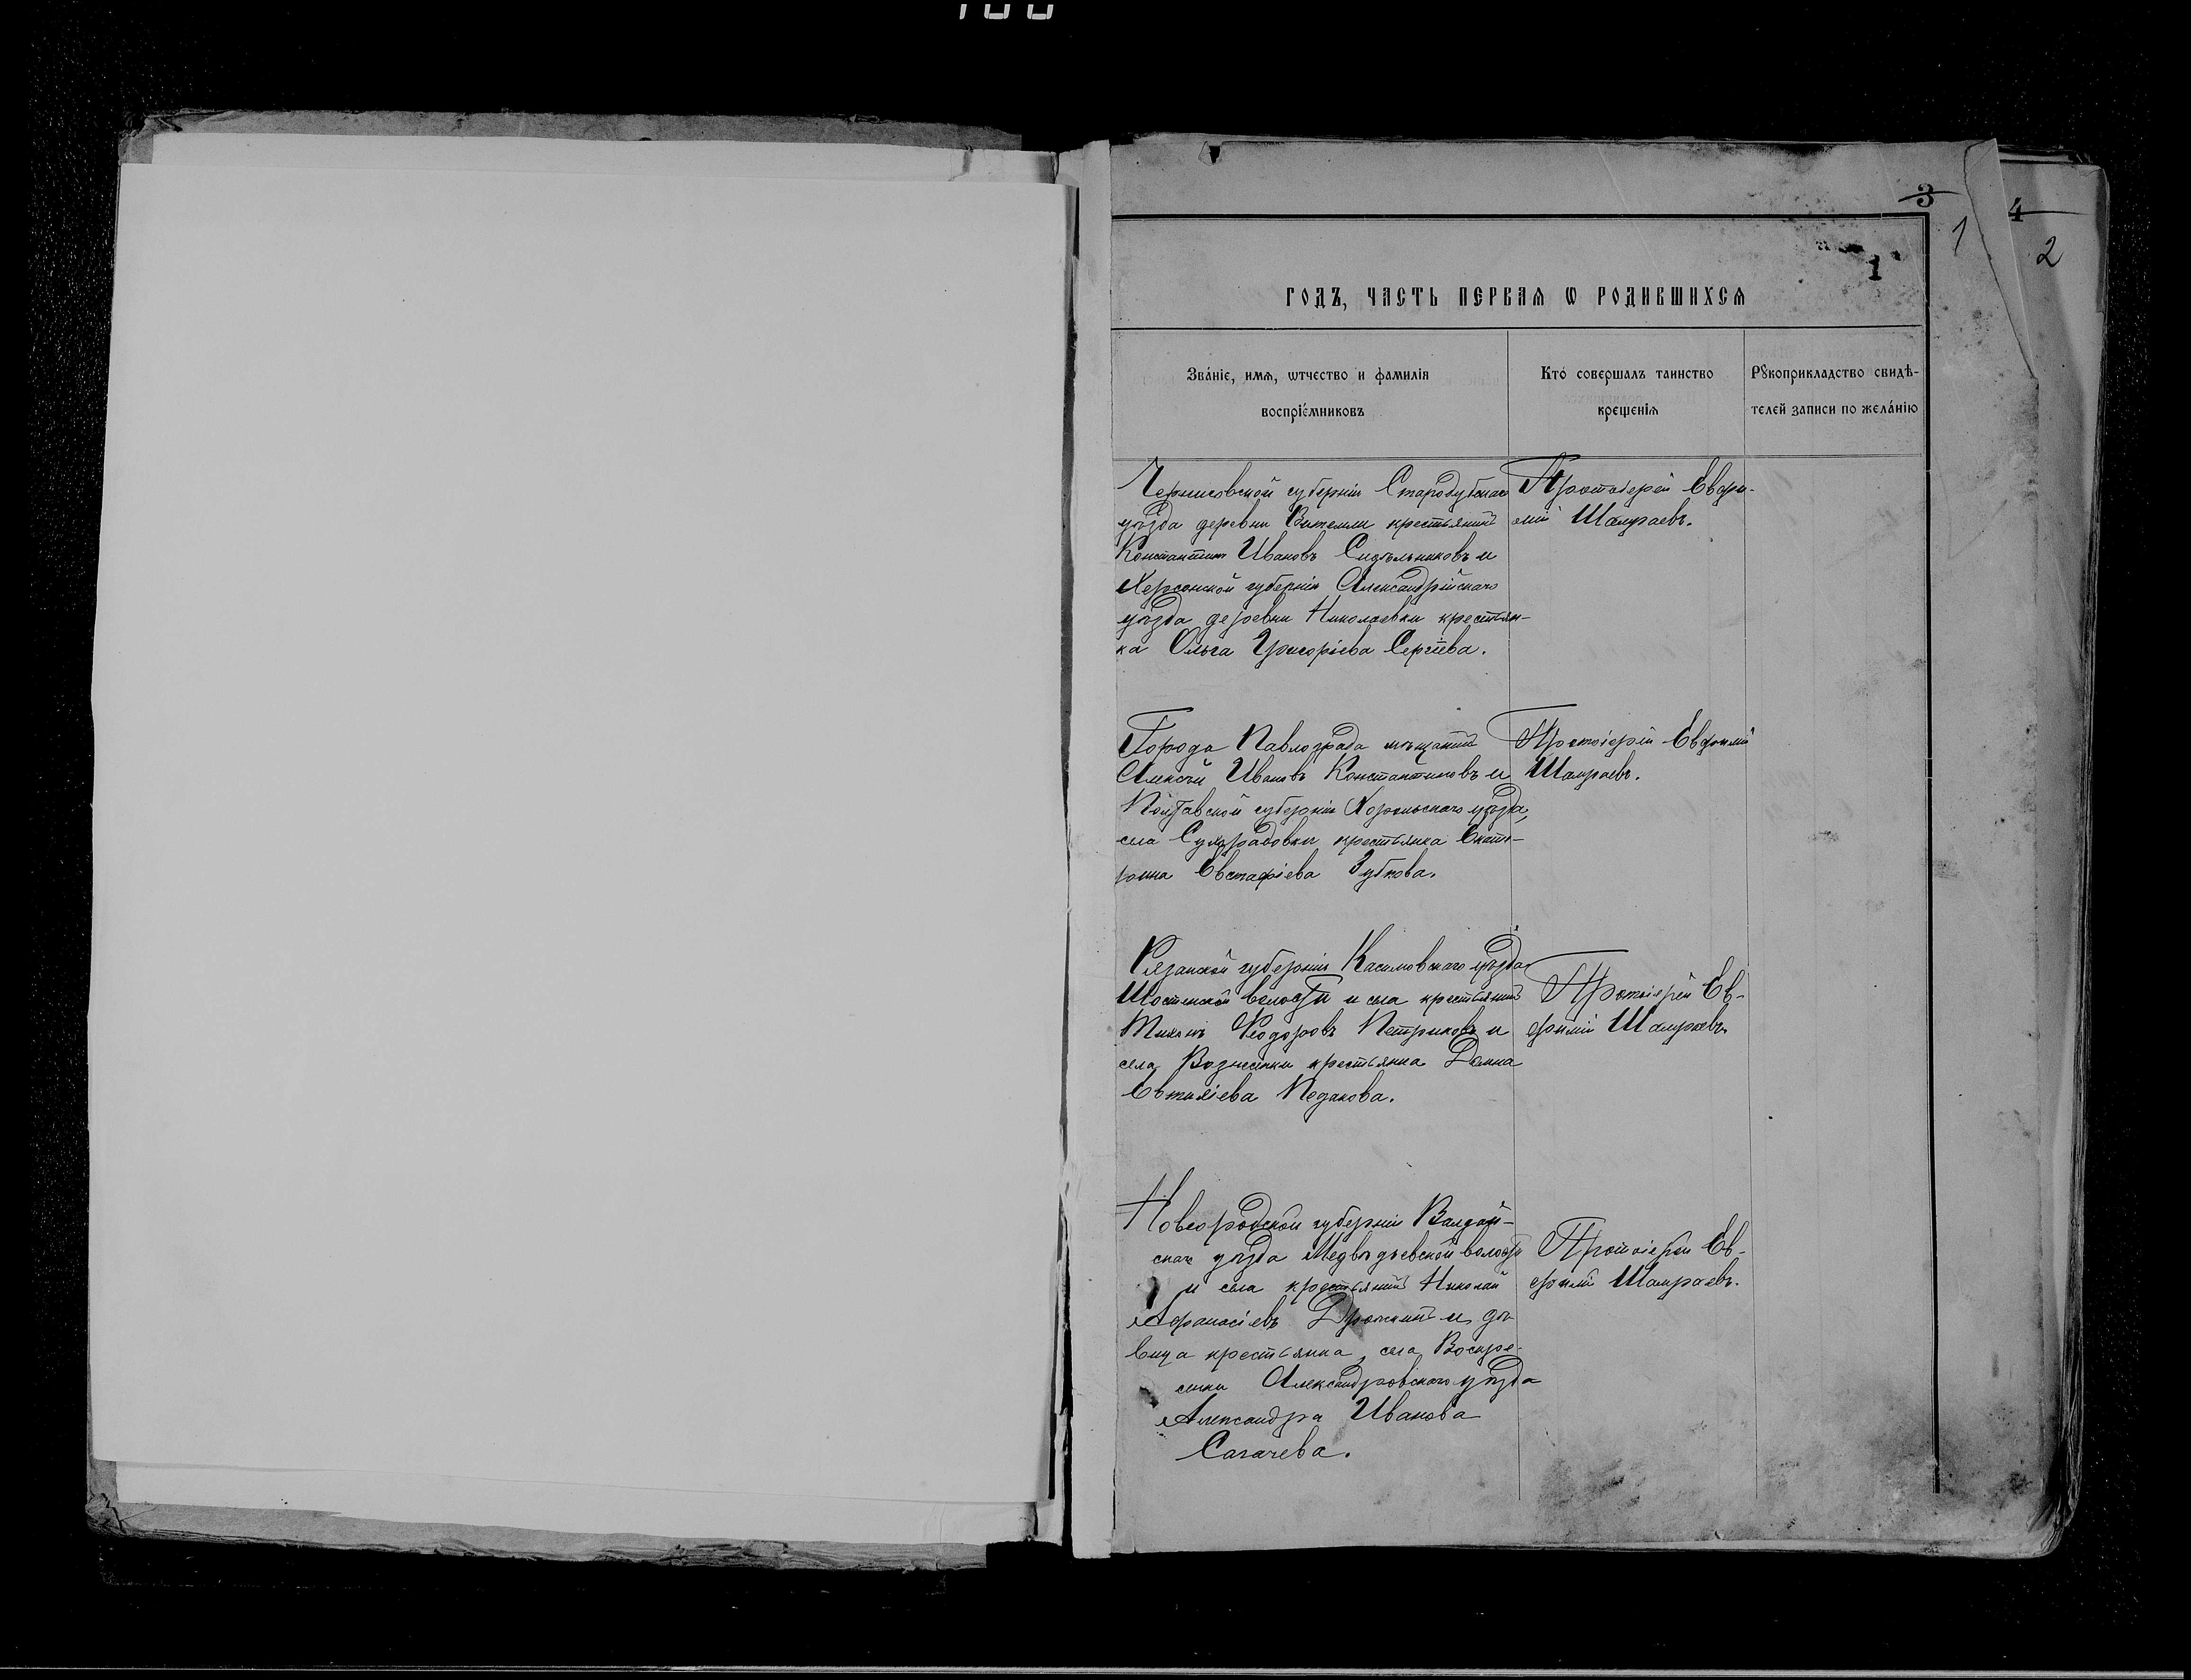 100
3
4
1
2
1
ГОДЪ, ЧАСТЬ ПЕРВАѦ Ѡ РОДИВШИХСѦ
Зва́нїе, имѧ, ѡтчество и фамилїѧ
воспрїе́мниковъ
Кто́ совершалъ таинство
крещенїѧ
Рꙋкоприкладство свидѣ-
телей записи по жела́нїю
Черниговской губерніи Стародубскаго
уѣзда деревни крестьянинъ
Константинъ Ивановъ Сидѣльниковъ и
Херсонской губерніи Александрійскаго
уѣзда деревни Николаевки крестьян-
ка Ольга Григоріева Сергѣева.
Протоіерей Евфи-
мій Шамраевъ.
Города Павлограда мѣщанинъ
Алексѣй Ивановъ Константиновъ и
Полтавской губерніи Хорольскаго уѣзда,
села крестьянка Екате-
рина Евстафіева Зубкова.
Протоіерей Евфимій
Шамраевъ.
Рязанской губерніи Касимовскаго уѣзда
Шостьинской волости и села крестьянинъ
Тихонъ Ѳеодоровъ Петриковъ и
села Вознесенки крестьянка Домна
Евтихіева
Протоіерей Ев-
фимій Шамраевъ.
Новгородской губерніи Валдай-
скаго уѣзда Медвѣдьевской волости
и села крестьянинъ Николай
Афанасіевъ и дѣ-
вица крестьянка, села Воскре-
сенки Александровскаго уѣзда
Александра Иванова
Сагачева.
Протоіерей Ев-
фимій Шамраевъ.